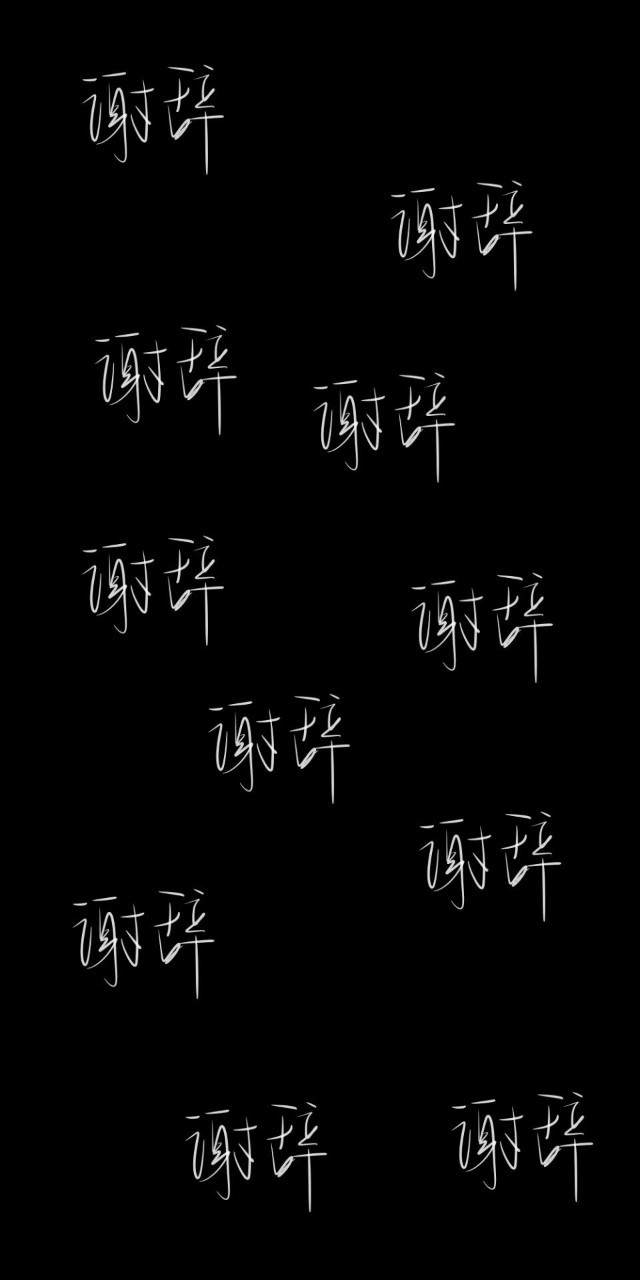 谢辞
谢辞
谢辞
谢辞
谢辞
谢辞
谢辞
谢辞
谢辞
谢辞
谢辞